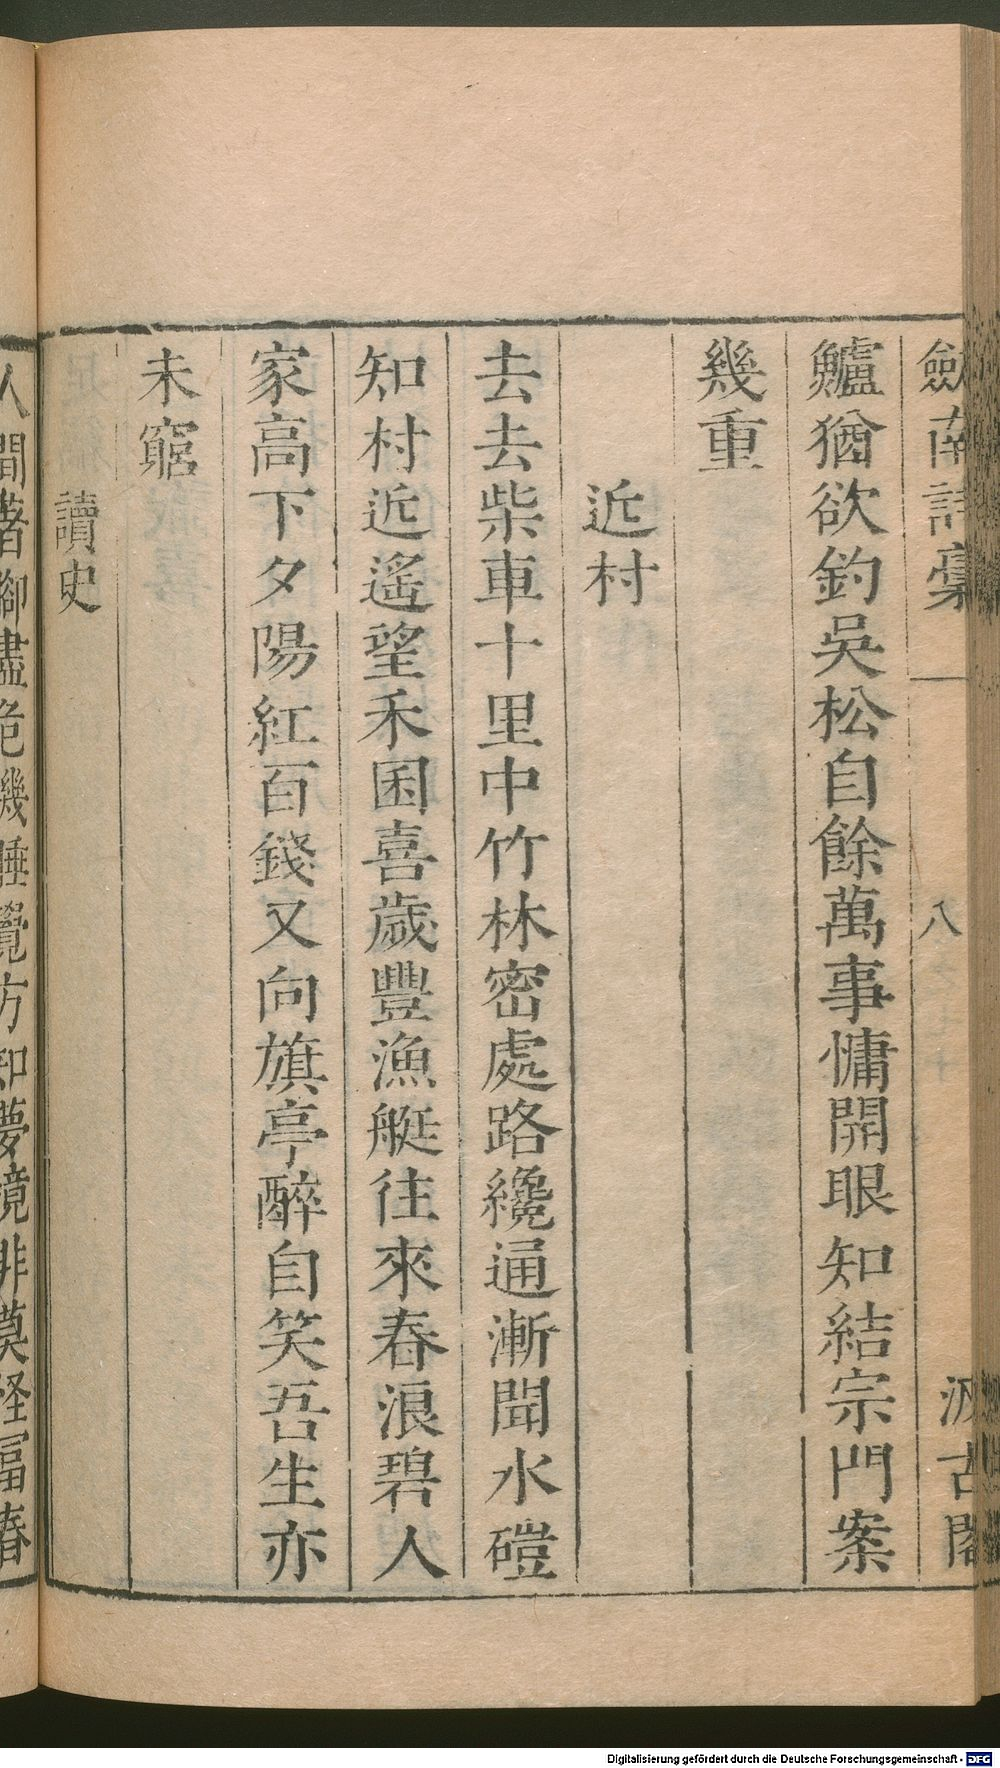 劍南詩稾 八 汲古閣
鱸猶欲釣吳松自餘萬事慵開眼知結宗門案
幾重
近村
去去柴車十里中竹林密處路纔通漸聞水磑
知村近遙望禾囷喜歲豐漁艇往來春浪碧人
家高下夕陽紅百錢又向旗亭醉自笑吾生亦
未窮
讀史
人間著腳盡危機睡覺方知夢境非莫怪富春
Digitalisierung gefördert durch die Deutsche Forschungsgemeinschaft - DFG